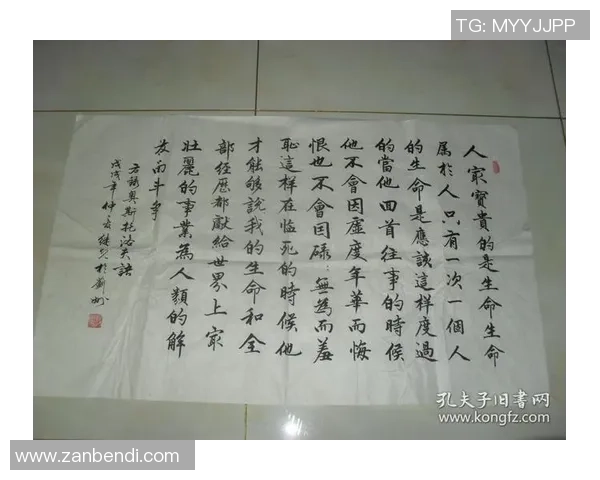 TG: MYYJJPP
人最寶貴的是生命生命
属於人只有一次一個人
的生命是應該這樣度過
的當他回首往事的時候
他不會因虛度年華而悔
恨也不會因碌碌無為而羞
恥這樣在臨死的時候他
才能够說我的生命和全
部經歷都獻給世界上最
壯麗的事業為人類的解
放而斗争
奥斯托洛夫語
戊戌年仲
於蘄州
孔夫子旧書网
www.kongfz.com
www.zanbendi.com